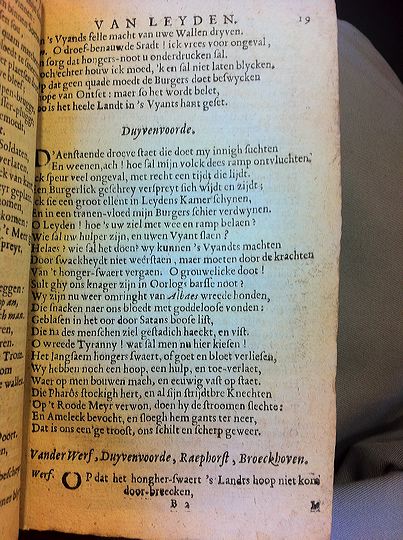 VAN LEYDEN. 19
'n 's Vyands felle macht van uwe Wallen dryven.
O droef-benauwde Stadt! ick vrees voor ongeval,
sorg dat hongers-noot u onderdrucken sal.
och echter houw ick moed, 'k en sal niet laten blycken,
op dat geen quade moedt de Burgers doet beswycken
ope van Ontset: maer so het wordt belet,
oo is het heele Landt in 's Vyants hant geset.
Duyvenvoorde.
D'Aenstaende droeve staet die doet my innigh suchten
En weenen, ach! hoe sal mijn volck dees ramp ontvluchten,
ck speur veel ongeval, met recht een tijdt die lijdt.
en Burgerlick geschrey verspreyt sich wijdt en zijdt;
ck sie een groot ellent in Leydens Kamer schynen,
En in een tranen-vloed mijn Burgers schier verdwynen.
O Leyden! hoe 's uw ziel met wee en ramp belaen?
Wie sal uw hulper zijn, en uwen Vyant slaen?
Helaes? wie sal het doen? wy kunnen 's Vyandts machten
Door swackheydt niet weêrstaen, maer moeten door de krachten
Van 't honger-swaert vergaen. O grouwelicke doot!
Sult ghy ons knager zijn in Oorlogs barsse noot?
Wy zijn nu weer omringht van Albaes wreede honden,
Die snacken naer ons bloedt met goddeloose vonden:
Geblasen in het oor door Satans boose list,
Die na des menschen ziel gestadich haeckt, en vist.
O wreede Tyranny! wat sal men nu hier kiesen!
Het langsaem hongers swaert, of goet en bloet verliesen,
Wy hebben noch een hoop, een hulp, en toe-verlaet,
Waer op men bouwen mach, en eeuwig vast op staet.
Die Pharôs stockigh hert, en al sijn strijdtbre Knechten
Op 't Roode Meyr verwon, doen hy de stroomen slechte:
En Ameleck bevocht, en sloegh hem gants ter neer,
Dat is ons een'ge troost, ons schilt en scherp geweer.
Vander Werf, Duyvenvoorde, Raephorst, Broeckhoven.
Werf. OP dat het hongher-swaert 's Landts hoop niet kom
door-breecken,
B 2 M